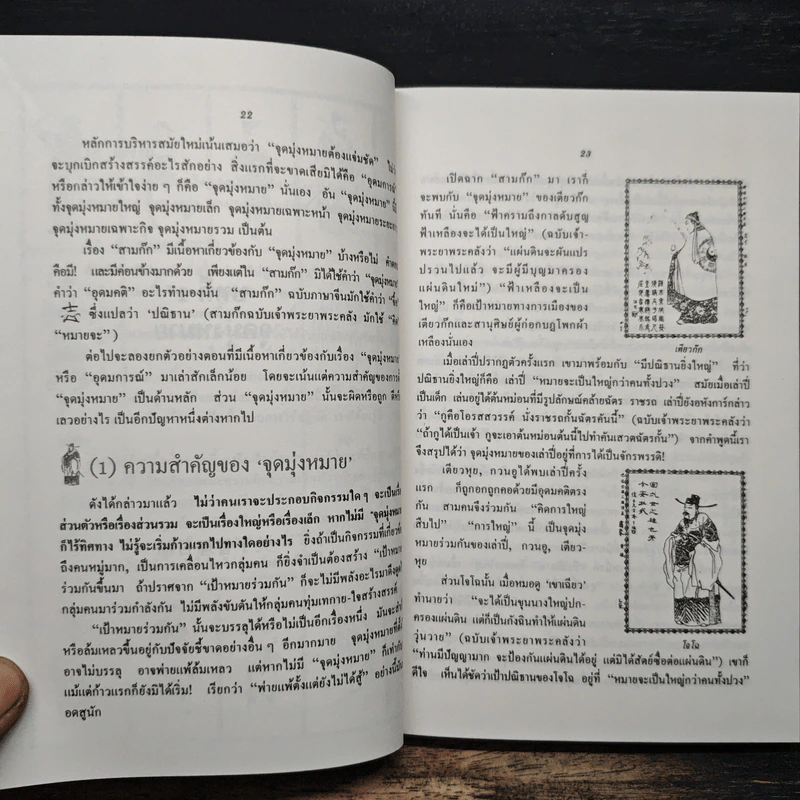 22
หลักการบริหารสมัยใหม่เน้นเสมอว่า “จุดมุ่งหมายต้องแจ่มชัด”
จะบุกเบิกสร้างสรรค์อะไรสักอย่าง สิ่งแรกที่จะขาดเสียมิได้คือ “อุดมการณ์”
หรือกล่าวให้เข้าใจง่าย ๆ ก็คือ “จุดมุ่งหมาย” นั่นเอง อัน “จุดมุ่งหมาย”
ทั้งจุดมุ่งหมายใหญ่ จุดมุ่งหมายเล็ก จุดมุ่งหมายเฉพาะหน้า
จุดมุ่งหมายเฉพาะกิจ จุดมุ่งหมายรวม เป็นต้น
เรื่อง “สามก๊ก” มีเนื้อหาเกี่ยวข้องกับ “จุดมุ่งหมาย” บ้างหรือไม่
คือมี! และมีค่อนข้างมากด้วย เพียงแต่ใน “สามก๊ก” มิได้ใช้คำว่า “จุดมุ่งหมาย”
คำว่า “อุดมคติ” อะไรทำนองนั้น “สามก๊ก” ฉบับภาษาจีนมักใช้คำว่า
志 ซึ่งแปลว่า ‘ปณิธาน’ (สามก๊กฉบับเจ้าพระยาพระคลัง มักใช้
“หมายจะ”)
ต่อไปจะลองยกตัวอย่างตอนที่มีเนื้อหาเกี่ยวข้องกับเรื่อง “จุดมุ่งหมาย”
หรือ “อุดมการณ์” มาเล่าสักเล็กน้อย โดยจะเน้นแต่ความสำคัญของการมี
“จุดมุ่งหมาย” เป็นด้านหลัก ส่วน “จุดมุ่งหมาย” นั้นจะผิดหรือถูก
เลวอย่างไร เป็นอีกปัญหาหนึ่งต่างหากไป
(1) ความสำคัญของ ‘จุดมุ่งหมาย’
ดังได้กล่าวมาแล้ว ไม่ว่าคนเราจะประกอบกิจกรรมใดๆ จะเป็นเรื่อง
ส่วนตัวหรือเรื่องส่วนรวม จะเป็นเรื่องใหญ่หรือเรื่องเล็ก หากไม่มี ‘จุดมุ่งหมาย’
ก็ไร้ทิศทาง ไม่รู้จะเริ่มก้าวแรกไปทางใดอย่างไร ยิ่งถ้าเป็นกิจกรรมที่เกี่ยว
ถึงคนหมู่มาก, เป็นการเคลื่อนไหวกลุ่มคน ก็ยิ่งจำเป็นต้องสร้าง “เป้าหมาย
ร่วมกันขึ้นมา ถ้าปราศจาก “เป้าหมายร่วมกัน” ก็จะไม่มีพลังอะไรมาดึงดูด
กลุ่มคนมารวมกำลังกัน ไม่มีพลังขับดันให้กลุ่มคนทุ่มเทกาย-ใจสร้างสรรค์
“เป้าหมายร่วมกัน” นั้นจะบรรลุได้หรือไม่เป็นอีกเรื่องหนึ่ง
หรือล้มเหลวขึ้นอยู่กับปัจจัยชี้ขาดอย่างอื่น ๆ อีกมากมาย
อาจไม่บรรลุ อาจพ่ายแพ้ล้มเหลว แต่หากไม่มี “จุดมุ่งหมาย” ก็เท่ากับ
แม้แต่ก้าวแรกก็ยังมิได้เริ่ม! เรียกว่า “พ่ายแพ้ตั้งแต่ยังไม่ได้สู้”
อดสูนัก
23
เปิดฉาก “สามก๊ก” มา เราก็
จะพบกับ “จุดมุ่งหมาย” ของเตียวก๊ก
ทันที นั่นคือ “ฟ้าครามถึงกาลดับสูญ
ฟ้าเหลืองจะได้เป็นใหญ่” (ฉบับเจ้า-
พระยาพระคลังว่า “แผ่นดินจะผันแปร
ปรวนไปแล้ว จะมีผู้มีบุญมาครอง
แผ่นดินใหม่”) “ฟ้าเหลืองจะเป็น
ใหญ่” ก็คือเป้าหมายทางการเมืองของ
เตียวก๊กและสานุศิษย์ผู้ก่อกบฏโพกผ้า
เหลืองนั่นเอง
เตียวก๊ก
เมื่อเล่าปี่ปรากฏตัวครั้งแรก เขามาพร้อมกับ “มีปณิธานยิ่งใหญ่” ที่ว่า
ปณิธานยิ่งใหญ่ก็คือ เล่าปี่ “หมายจะเป็นใหญ่กว่าคนทั้งปวง” สมัยเมื่อเล่าปี่
เป็นเด็ก เล่นอยู่ใต้ต้นหม่อนที่มีรูปลักษณ์คล้ายฉัตร ราชรถ เล่าปี่ยังอหังการ์กล่าว
ว่า “กูคือโอรสสวรรค์ นั่งราชรถกั้นฉัตรคันนี้” (ฉบับเจ้าพระยาพระคลังว่า
“ถ้ากูได้เป็นเจ้า กูจะเอาต้นหม่อนต้นนี้ไปทำคันเสวตฉัตรกั้น”) จากคำพูดนี้เรา
จึงสรุปได้ว่า จุดมุ่งหมายของเล่าปี่อยู่ที่การได้เป็นจักรพรรดิ!
เตียวหุย, กวนอูได้พบเล่าปี่ครั้ง
แรก ก็ถูกอกถูกคอด้วยมีอุดมคติตรง
กัน สามคนจึงร่วมกัน “คิดการใหญ่
สืบไป” “การใหญ่” นี้ เป็นจุดมุ่ง
หมายร่วมกันของเล่าปี่, กวนอู, เตียว-
หุย
ส่วนโจโฉนั้น เมื่อหมอดู “เขาเฉียว”
ทำนายว่า “จะได้เป็นขุนนางใหญ่ปก-
ครองแผ่นดิน แต่ก็เป็นกังฉินทำให้แผ่นดิน
วุ่นวาย” (ฉบับเจ้าพระยาพระคลังว่า
โจโฉ
“ท่านมีปัญญามาก จะป้องกันแผ่นดินได้อยู่ แต่มิได้สัตย์ซื่อต่อแผ่นดิน”) เขาก็
ดีใจ เห็นได้ชัดว่าเป้าปณิธานของโจโฉ อยู่ที่ “หมายจะเป็นใหญ่กว่าคนทั้งปวง”